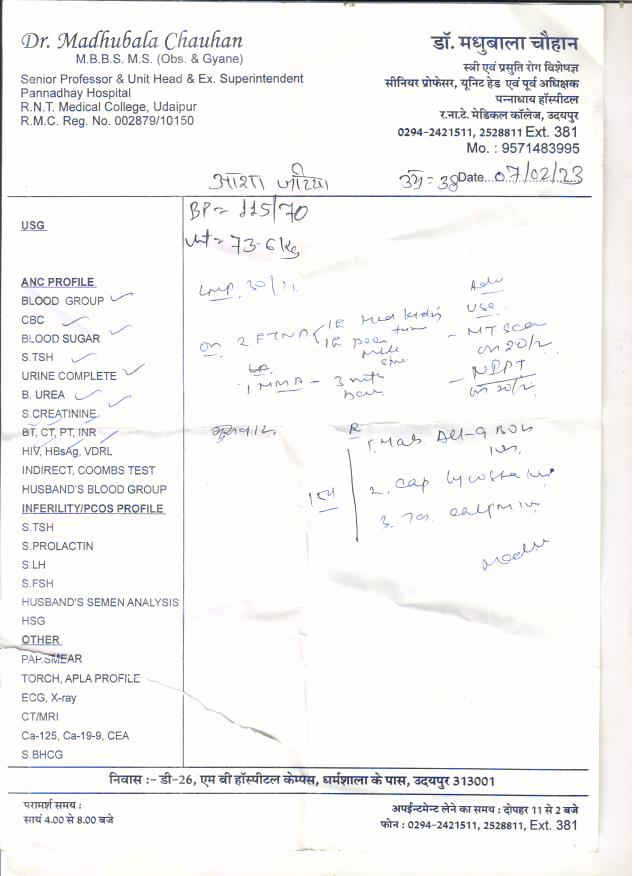 Dr. Madhubala Chauhan
M.B.B.S. M.S. (Obs. & Gyane)
Senior Professor & Unit Head & Ex. Superintendent
Pannadhay Hospital
R.N.T. Medical College, Udaipur
R.M.C. Reg. No. 002879/10150
डॉ. मधुबाला चौहान
स्त्री एवं प्रसुति रोग विशेषज्ञ
सीनियर प्रोफेसर, यूनिट हेड एवं पूर्व अधिक्षक
पन्नाधाय हॉस्पीटल
र.ना.टे. मेडिकल कॉलेज, उदयपुर
0294-2421511, 2528811 Ext. 381
Mo. : 9571483995
आशा उम्र : 38 Date... 07/02/23
BP = 115/70
Wt = 73.6 kg
USG
ANC PROFILE
BLOOD GROUP
CBC
BLOOD SUGAR
S.TSH
URINE COMPLETE
B. UREA
S.CREATININE
BT, CT, PT, INR
HIV, HBsAg, VDRL
INDIRECT, COOMBS TEST
HUSBAND'S BLOOD GROUP
INFERILITY/PCOS PROFILE
S.TSH
S.PROLACTIN
S.LH
S.FSH
HUSBAND'S SEMEN ANALYSIS
HSG
OTHER
PAP.SMEAR
TORCH, APLA PROFILE
ECG, X-ray
CT/MRI
Ca-125, Ca-19-9, CEA
S.BHCG
LMP 30/11
2 FTND
Adv
- NT Scan
on 20/2
- NIPT
on 20/2
R
1.
2. Cap
3.
निवास :- डी-26, एम बी हॉस्पीटल केम्पस, धर्मशाला के पास, उदयपुर 313001
परामर्श समय :
सायं 4.00 से 8.00 बजे
अपॉईन्टमेन्ट लेने का समय : दोपहर 11 से 2 बजे
फोन : 0294-2421511, 2528811, Ext. 381